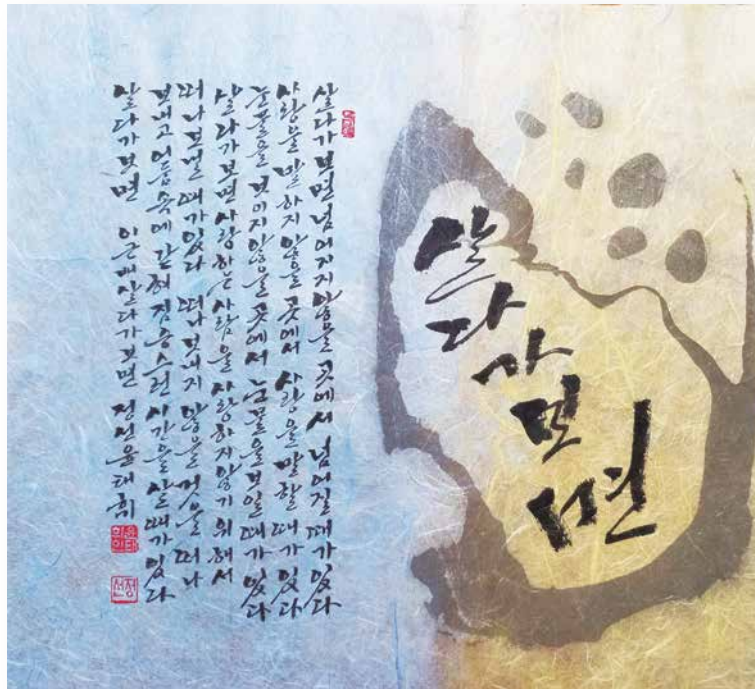 살다가보면
살다가보면 넘어지지 않을 곳에서 넘어질 때가 있다
사랑을 말하지 않을 곳에서 사랑을 말할 때가 있다
눈물을 보이지 않을 곳에서 눈물을 보일 때가 있다
살다가보면 사랑하는 사람을 사랑하지 않기 위해서
떠나보낼 때가 있다 떠나보내지 않을 것을 떠나
보내고 어둠속에 갇혀 짐승스런 시간을 살 때가 있다
살다가보면 이근배 살다가보면 정선 윤태희
윤태희인
정선